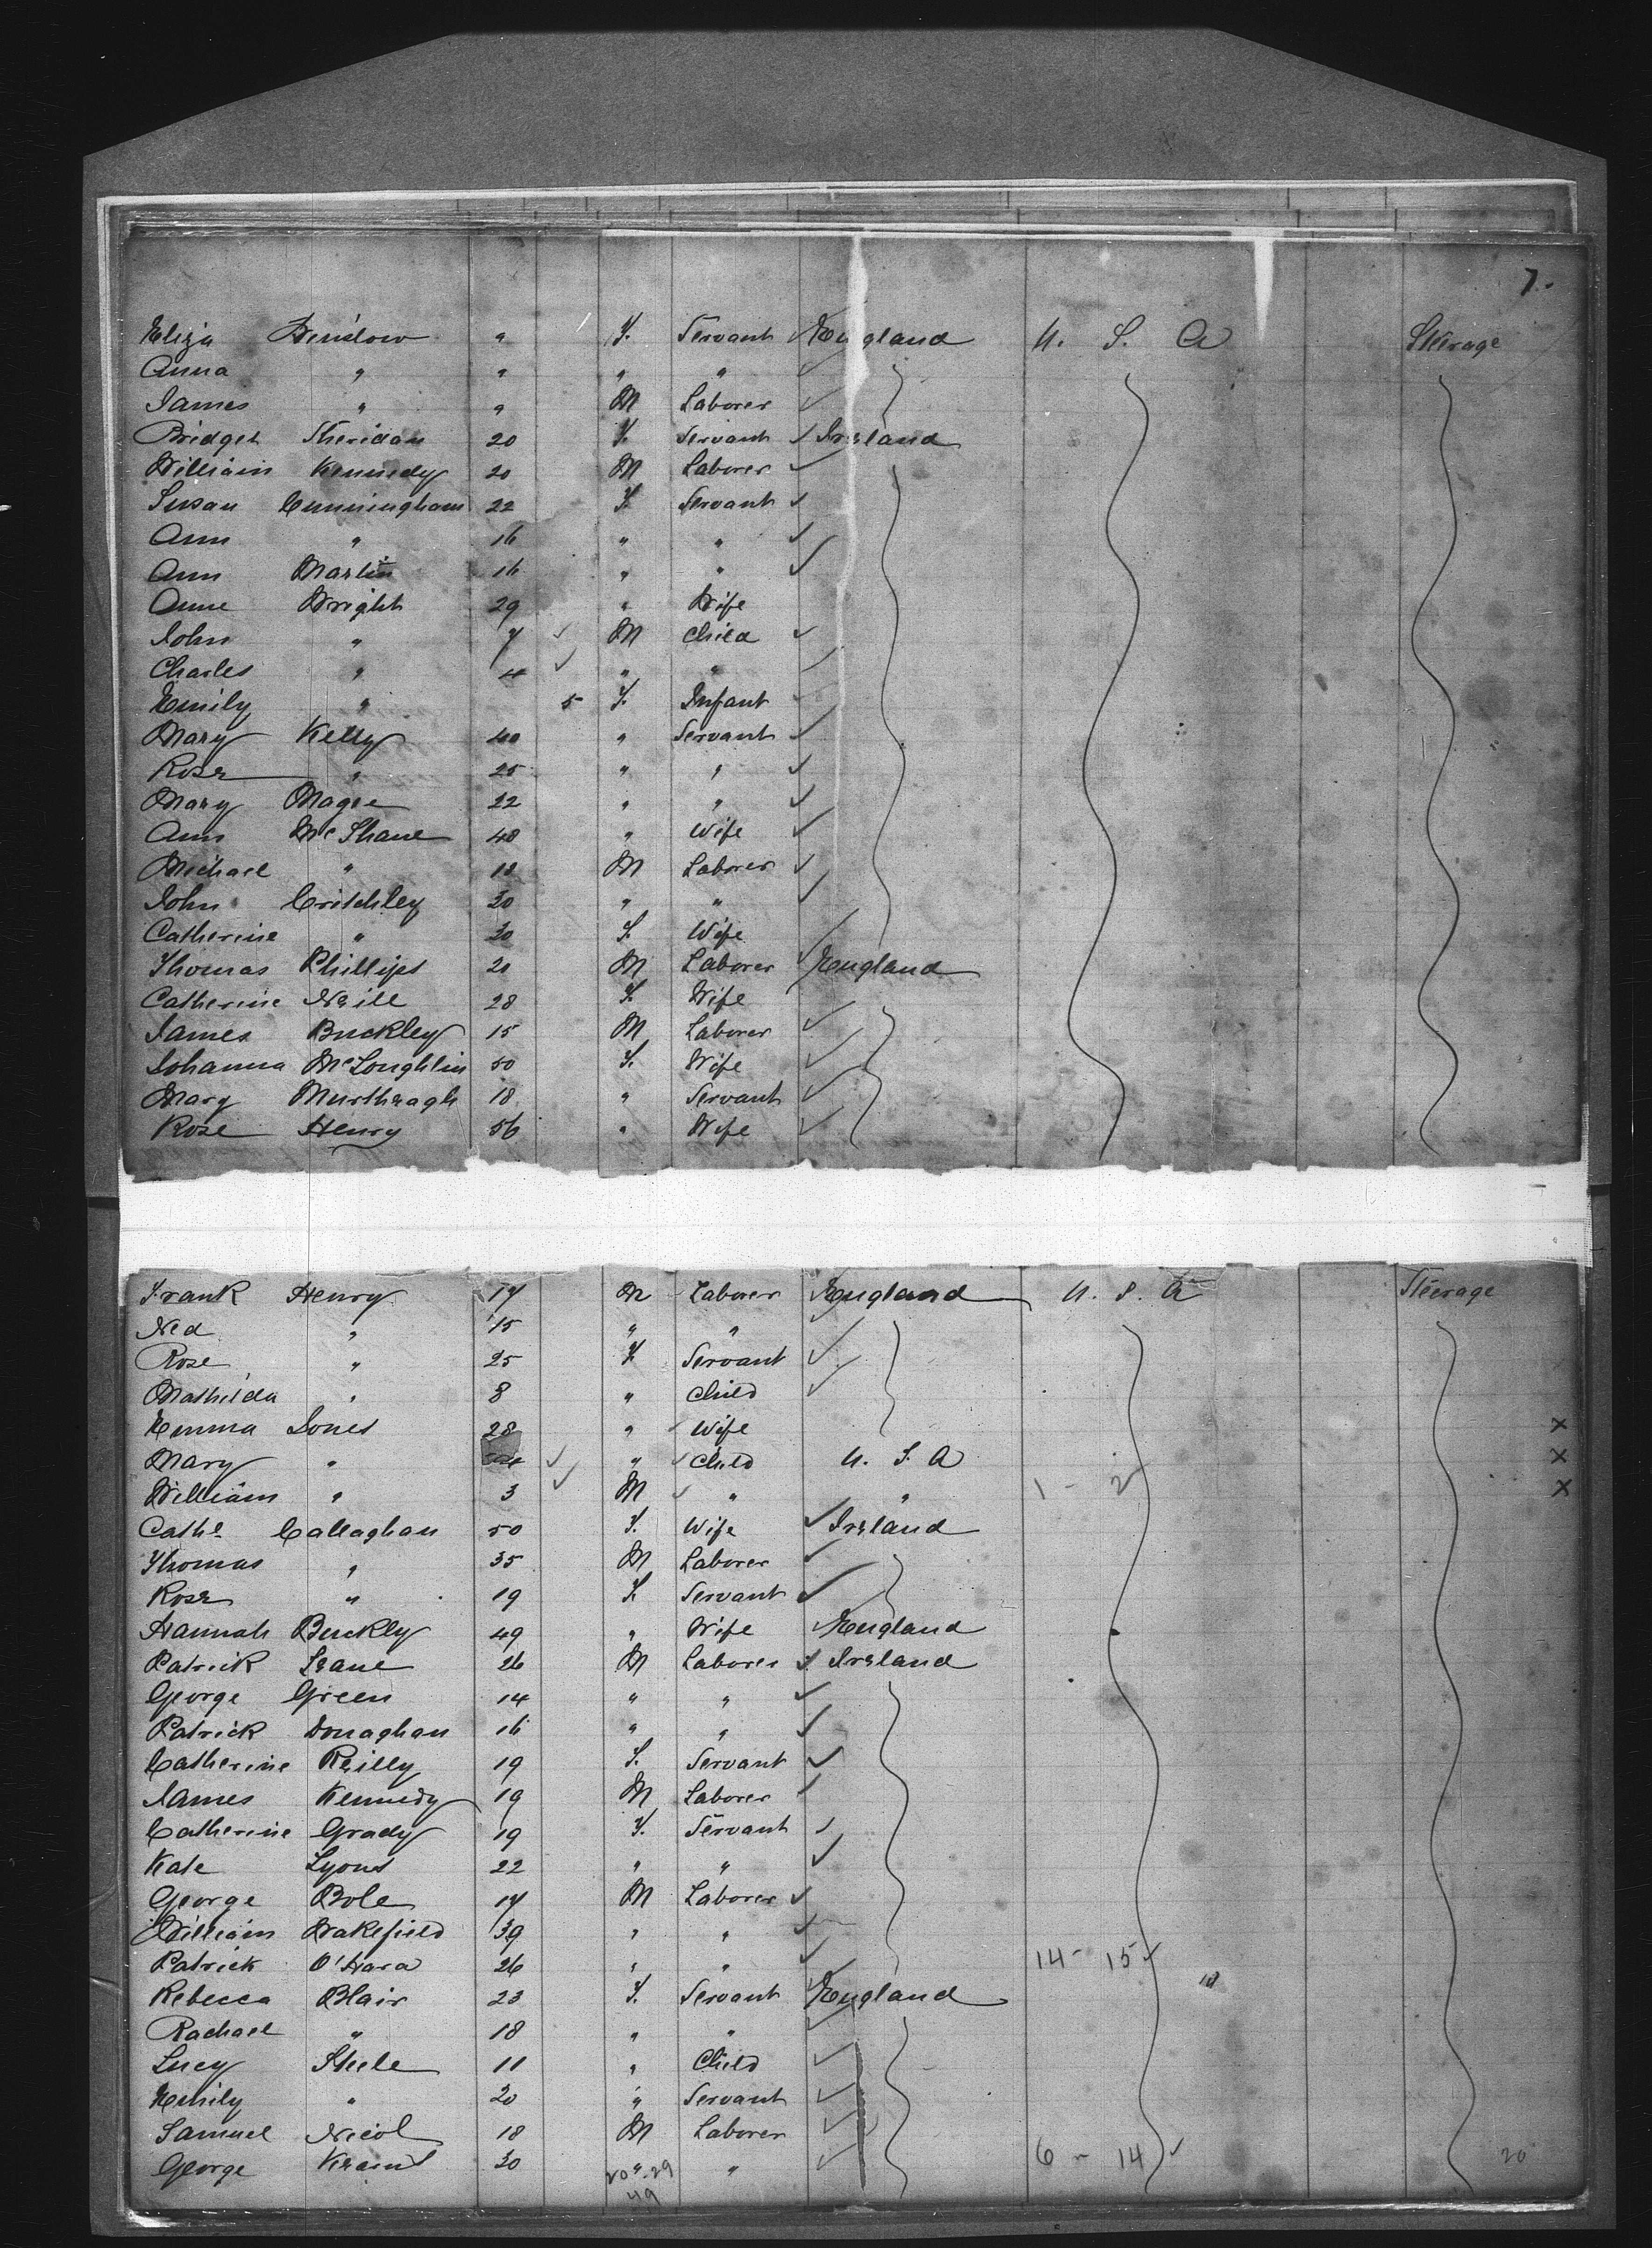 7.
Eliza Winslow " F. Servant England U. S. A Steerage
Anna " " " "
James " " M Laborer
Bridget Sheridan 20 F. Servant Ireland
William Kennedy 20 M Laborer
Susan Cunningham 22 F. Servant
Ann " 16 " "
Ann Martin 16 " "
Anne Wright 29 " Wife
John " 7 M Child
Charles " 4 " "
Emily " 5 F. Infant
Mary Kelly 40 " Servant
Rose " 25 " "
Mary Magee 22 " "
Ann McShane 48 " Wife
Michael " M Laborer
John Critchley 20 " "
Catherine " 20 F. Wife
Thomas Phillips 20 M Laborer England
Catherine Neill 28 F. Wife
James Buckley 15 M Laborer
Johanna McLoughlin 50 F. Wife
Mary Murtheagh 18 " Servant
Rose Henry 56 " Wife
Frank Henry 17 M Laborer England U. S. A Steerage
Ned " 15 " "
Rose " 25 F. Servant
Mathilda " 8 " Child
Emma Jones 28 " Wife x
Mary " " Child U. S. A x
William " 3 M " " 1 - 2 x
Cathe Callaghan 50 F. Wife Ireland
Thomas " 35 M Laborer
Rose " 19 F. Servant
Hannah Buckly 49 " Wife England
Patrick Leane 26 M Laborer Ireland
George Green 14 " "
Patrick Donaghan 16 " "
Catherine Reilly 19 F. Servant
James Kennedy 19 M Laborer
Catherine Grady 19 F. Servant
Kate Lyons 22 " "
George Bole 17 M Laborer
William Wakefield 39 " "
Patrick O'Hara 26 " " 14 - 15
Rebecca Blair 23 F. Servant England
Rachael " 18 " "
Lucy Steele 11 " Child
Emily " 20 " Servant
Samuel Nicol 18 M Laborer
George 20 " " 6 - 14 20
20 - 29
49